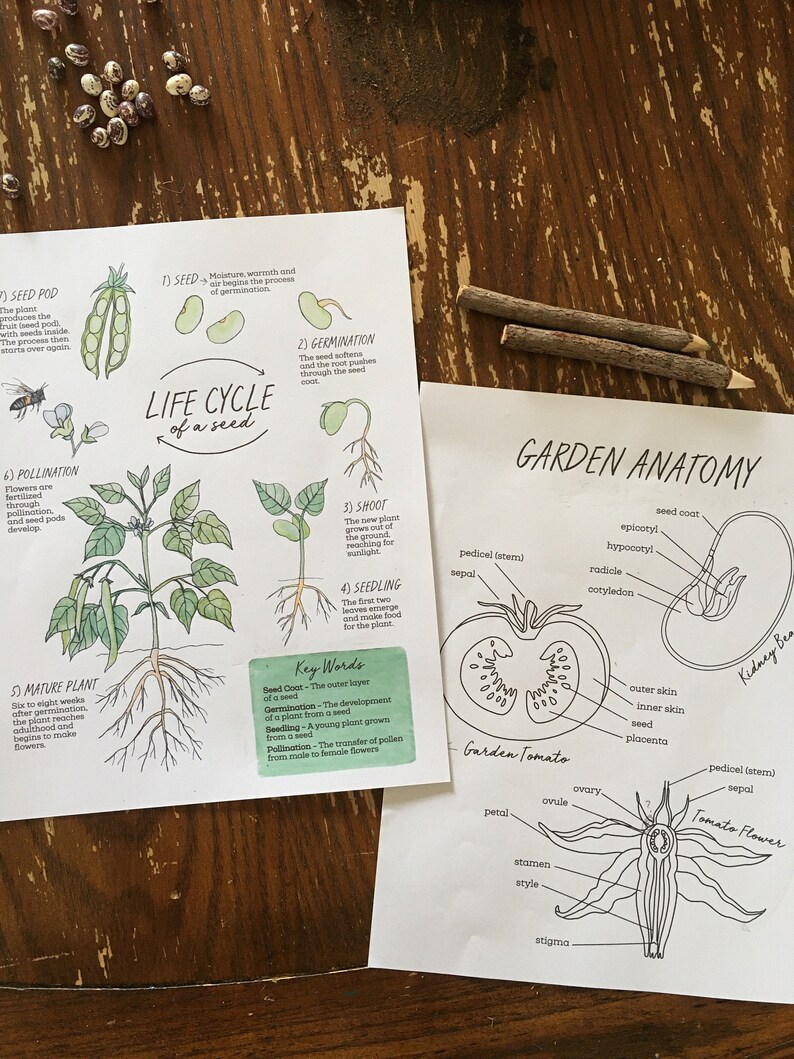 LIFE CYCLE
of a seed
1) SEED → Moisture, warmth and
air begins the process
of germination.
2) GERMINATION
The seed softens
and the root pushes
through the seed
coat.
3) SHOOT
The new plant
grows out of
the ground,
reaching for
sunlight.
4) SEEDLING
The first two
leaves emerge
and make food
for the plant.
5) MATURE PLANT
Six to eight weeks
after germination,
the plant reaches
adulthood and
begins to make
flowers.
6) POLLINATION
Flowers are
fertilized
through
pollination,
and seed pods
develop.
7) SEED POD
The plant
produces the
fruit (seed pod),
with seeds inside.
The process then
starts over again.
Key Words
Seed Coat - The outer layer
of a seed
Germination - The development
of a plant from a seed
Seedling - A young plant grown
from a seed
Pollination - The transfer of pollen
from male to female flowers
GARDEN ANATOMY
seed coat
epicotyl
hypocotyl
radicle
cotyledon
Kidney Bea
pedicel (stem)
sepal
outer skin
inner skin
seed
placenta
Garden Tomato
pedicel (stem)
sepal
ovary
ovule
?
petal
Tomato Flower
stamen
style
stigma